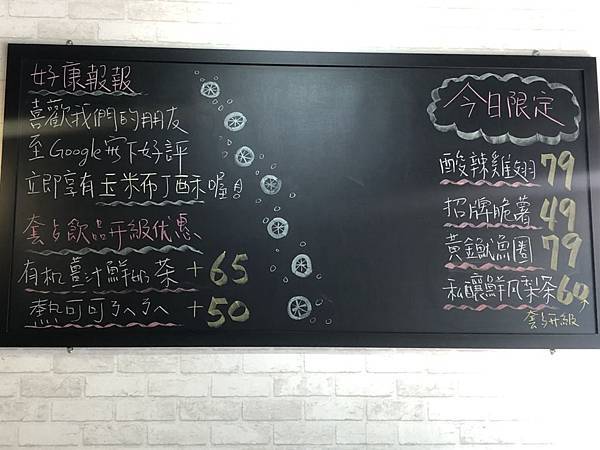 好康報報
喜歡我們的朋友
至Google寫下好評
立即享有玉米布丁酥喔!
套餐飲品升級优惠
有机薑汁鮮奶茶 +65
熱可可ㄋㄟㄋㄟ +50
今日限定
酸辣雞翅 79
招牌脆薯 49
黃金魷魚圈 79
私釀鮮鳳梨茶 60
套餐升級